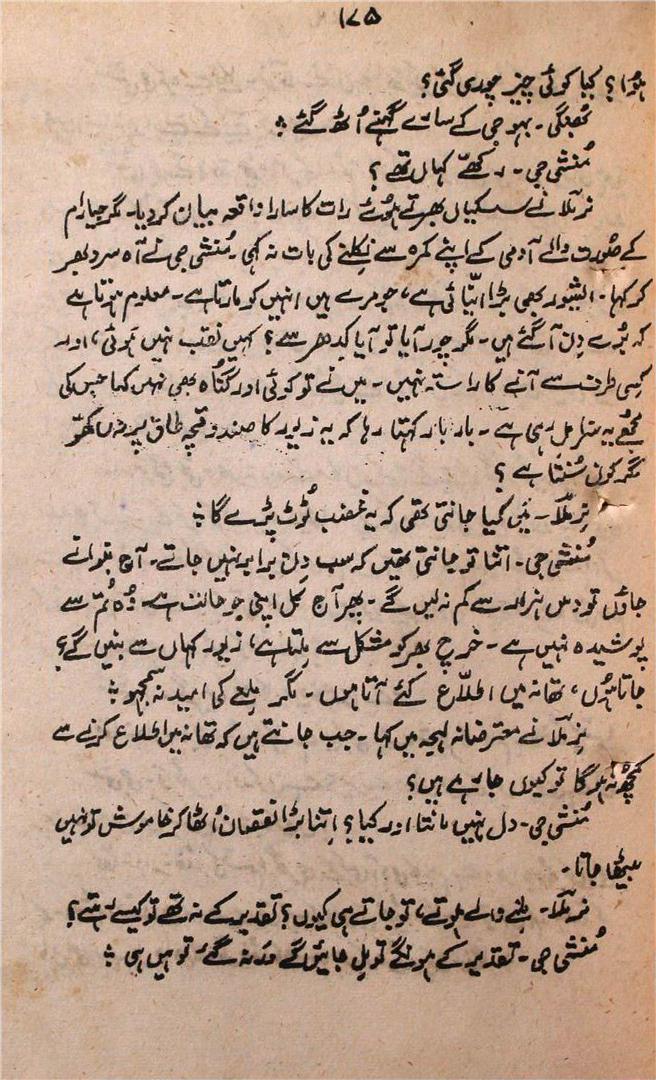 ۱۷۵
ہوا؟ کیا کوئی چیز چوری گئی؟
بھنگی۔ بہو جی کے سارے گہنے اُٹھ گئے ؞
مُنشی جی۔ رکھے کہاں تھے؟
نرملا نے سسکیاں بھرتے ہوئے رات کا سارا واقعہ بیان کردیا۔ مگر جیارام
کے صُورت والے آدمی کے اپنے کمرہ سے نکلنے کی بات نہ کہی۔ مُنشی جی نے آہ سرد بھر
کر کہا۔ ایشور بھی بڑا انیائی ہے، جو مرے ہیں انہیں کو مارتا ہے۔ معلوم ہوتا ہے
کہ بُرے دِن آگئے ہیں۔ مگر چور آیا تو آیا کِدھر سے؟ کہیں نقب نہیں ہوئی، اور
کِسی طرف سے آنے کا راستہ نہیں۔ میں نے تو کوئی اور گناہ بھی نہیں کیا جس کی
مجھے یہ سزا مل رہی ہے۔ بار بار کہتا رہا کہ یہ زیور کا صندوقچہ طاق پر نہ رکھو
مگر کون سُنتا ہے؟
نرملا۔ میں کیا جانتی تھی کہ یہ غضب ٹوٹ پڑے گا ؞
مُنشی جی۔ اتنا تو جانتی تھیں کہ سب دِن برابر نہیں جاتے۔ آج بنوانے
جاؤں تو دس ہزار سے کم نہ لیں گے۔ پھر آج کل اپنی جو حالت ہے۔ وُہ تُم سے
پوشیدہ نہیں ہے۔ خرچ بھر کو مشکل سے مِلتا ہے، زیور کہاں سے بنیں گے؟
جاتا ہُوں، تھانہ میں اطلاع کئے آتا ہوں۔ مگر مِلنے کی امید نہ سمجھو ؞
نِرملا نے معترضانہ لہجہ میں کہا۔ جب جانتے ہیں کہ تھانہ میں اطلاع کرنے سے
کُچھ نہ ہوگا تو کیوں جارہے ہیں؟
مُنشی جی۔ دل نہیں مانتا اور کیا؟ اِتنا بڑا نقصان اُٹھا کر خاموش تو نہیں
بیٹھا جاتا۔
نرملا۔ مِلنے والے ہوتے، تو جاتے ہی کیوں؟ تقدیر کے نہ تھے تو کیسے رہتے؟
مُنشی جی۔ تقدیر کے ہونگے تو مِل جائیں گے ورنہ گئے تو ہیں ہی ؞